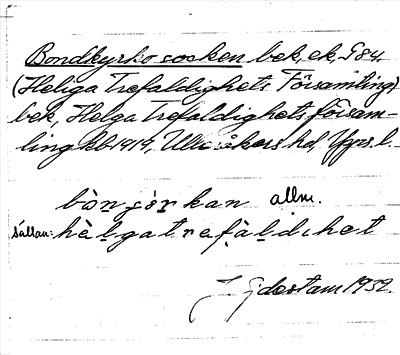 Bondkyrko socken bek, ek, G84.
(Heliga Trefaldighets Församling)
bek, Helga Trefaldighets försam-
ling kb 1919, Ulleråkers hd, Upps. l.
bòn̥ɕørkan allm.
Sällan: hèlgatrefàldıhet
J Gidestam 1932.